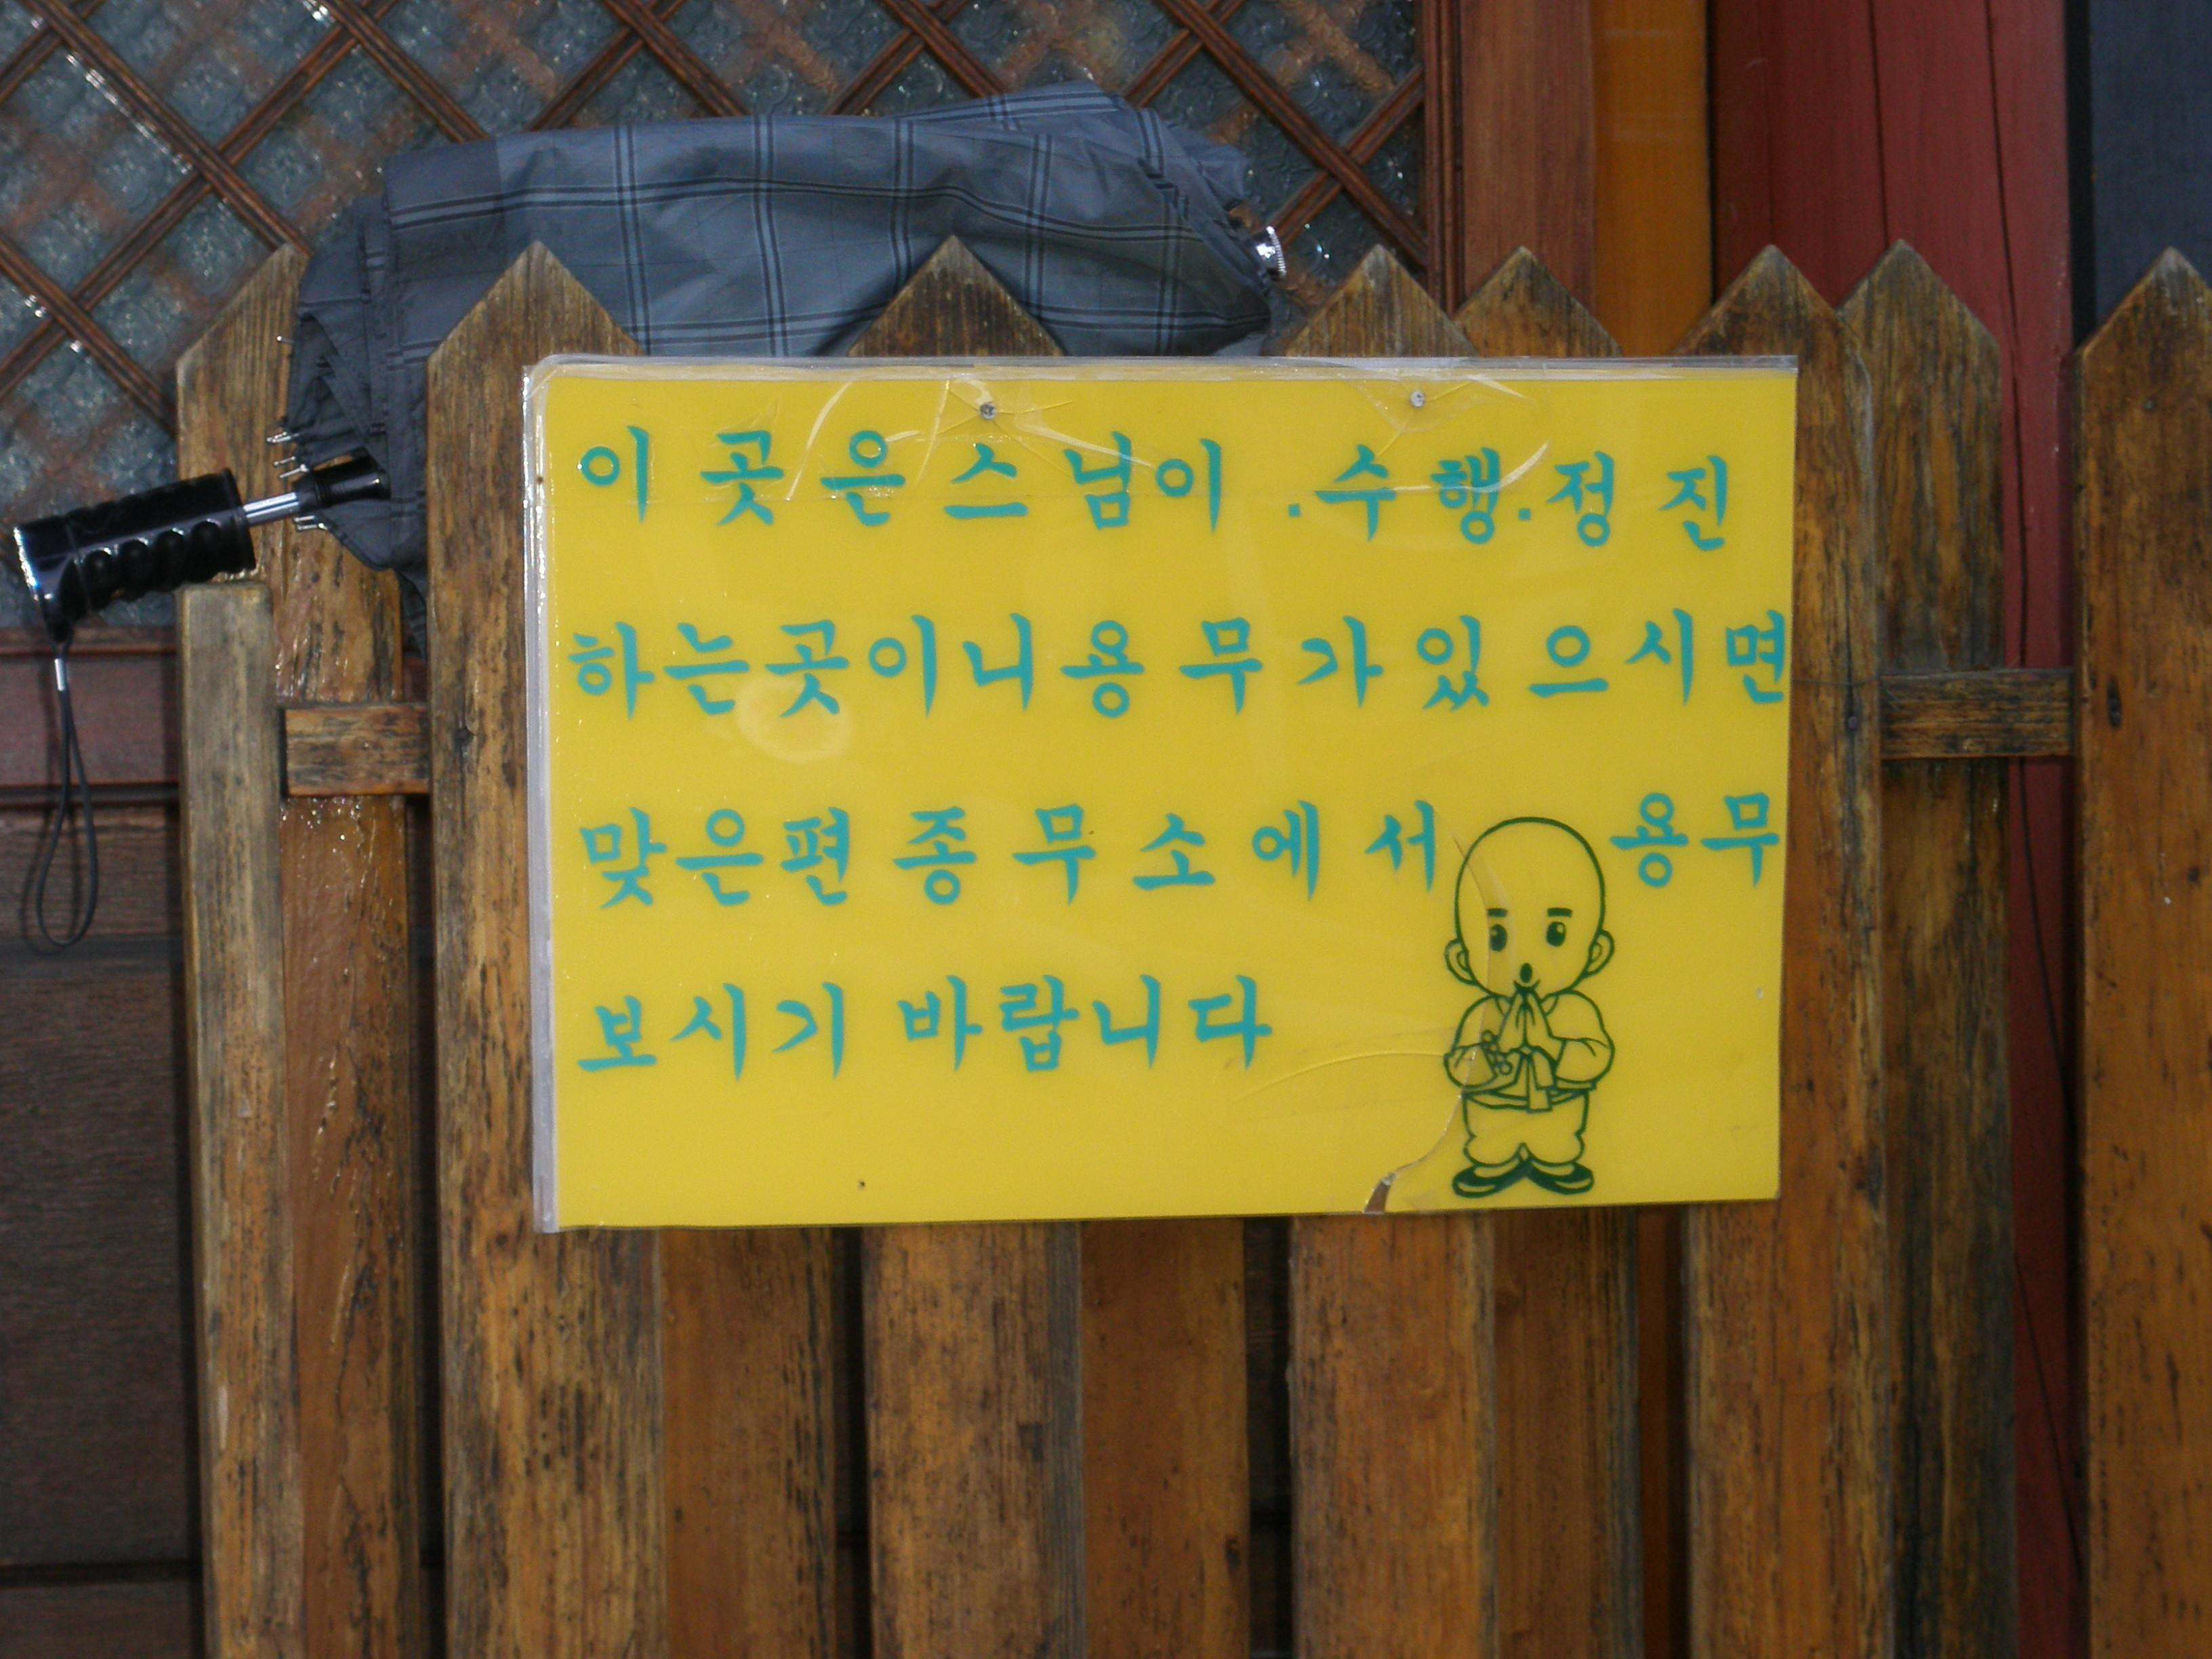 이 곳은 스님이 .수행.정진
하는곳이니 용무가 있으시면
맞은편 종무소에서 용무
보시기 바랍니다